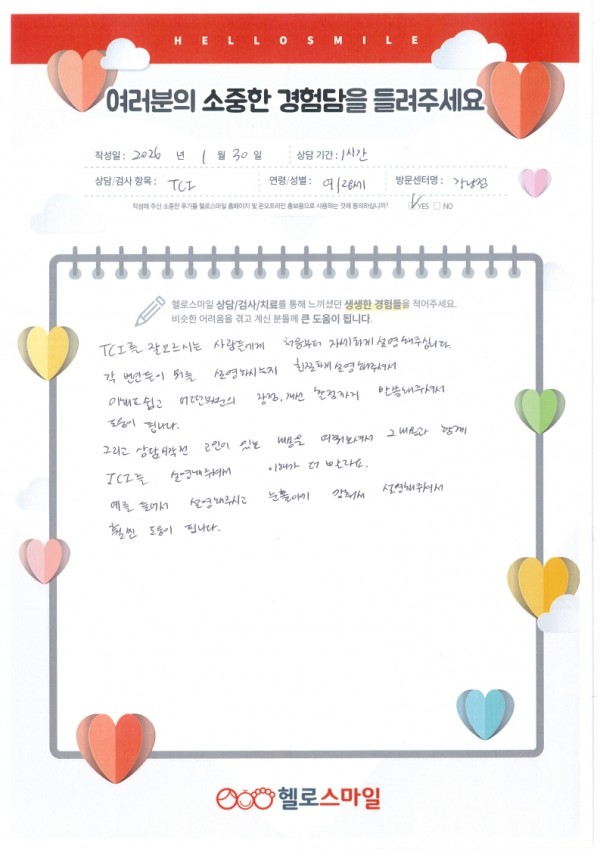 HELLOSMILE
여러분의 소중한 경험담을 들려주세요
작성일 : 2026 년 1 월 30 일 상담 기간 : 1시간
상담/검사 항목 : TCI 연령/성별 : 여/28세 방문센터명 : 강남점
작성해 주신 소중한 후기를 헬로스마일 홈페이지 및 온오프라인 홍보용으로 사용하는 것에 동의하십니까? YES NO
헬로스마일 상담/검사/치료를 통해 느끼셨던 생생한 경험들을 적어주세요.
비슷한 어려움을 겪고 계신 분들께 큰 도움이 됩니다.
TCI를 잘모르시는 사람들에게 처음부터 자세하게 설명해주십니다.
각 번면들이 뭐를 설명하시는지 친절하게 설명해주셔서
이해도쉽고 어떤 의 강점, 개선 까지 말씀해주셔서
도움이 됩니다.
그리고 상담시작전 고민이 있는 내용을 여쭤보셔서 그내용과 함께
TCI를 설명해주셔서 이해가 더 빨라요.
예를 들어서 설명해주시고 눈높이에 맞춰서 설명해주셔서
훨씬 도움이 됩니다.
헬로스마일